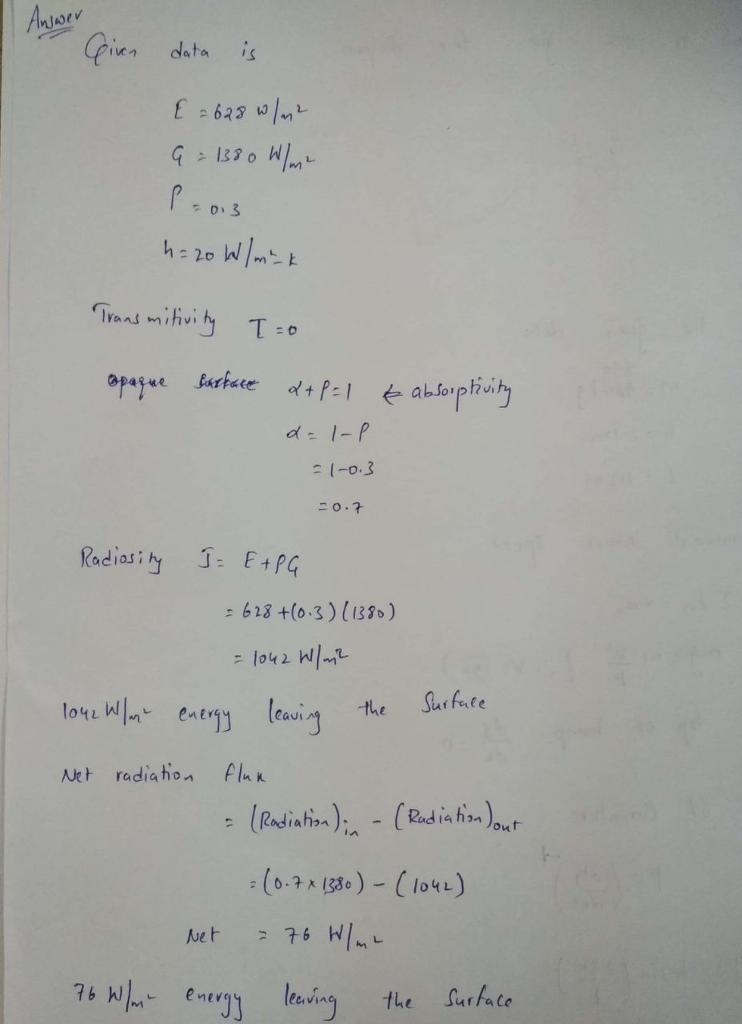 Answer
Given data is
E = 628 W/m²
G = 1380 W/m²
ρ = 0.3
h = 20 W/m²-k
Transmitivity τ = 0
opaque surface α+ρ=1 ← absorptivity
α = 1-ρ
= 1-0.3
= 0.7
Radiosity J = E+ρG
= 628 + (0.3) (1380)
= 1042 W/m²
1042 W/m² energy leaving the Surface
Net radiation flux
= (Radiation)in - (Radiation)out
= (0.7 x 1380) - (1042)
Net = 76 W/m²
76 W/m² energy leaving the Surface